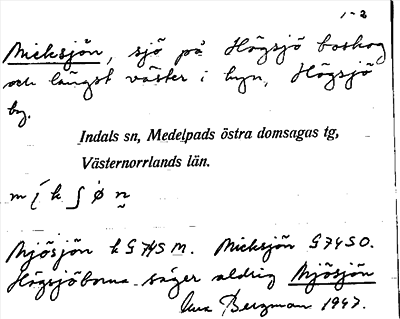 1-2
Micksjön, sjö på Högsjö boskog
och längst väster i byn, Högsjö
by.
Indals sn, Medelpads östra domsagas tg,
Västernorrlands län.
m í k ʃ ø n̰
Mjösjön k G 74 S M. Micksjön G 74 S O.
Högsjöborna säger aldrig Mjösjön
Bergman 1947.